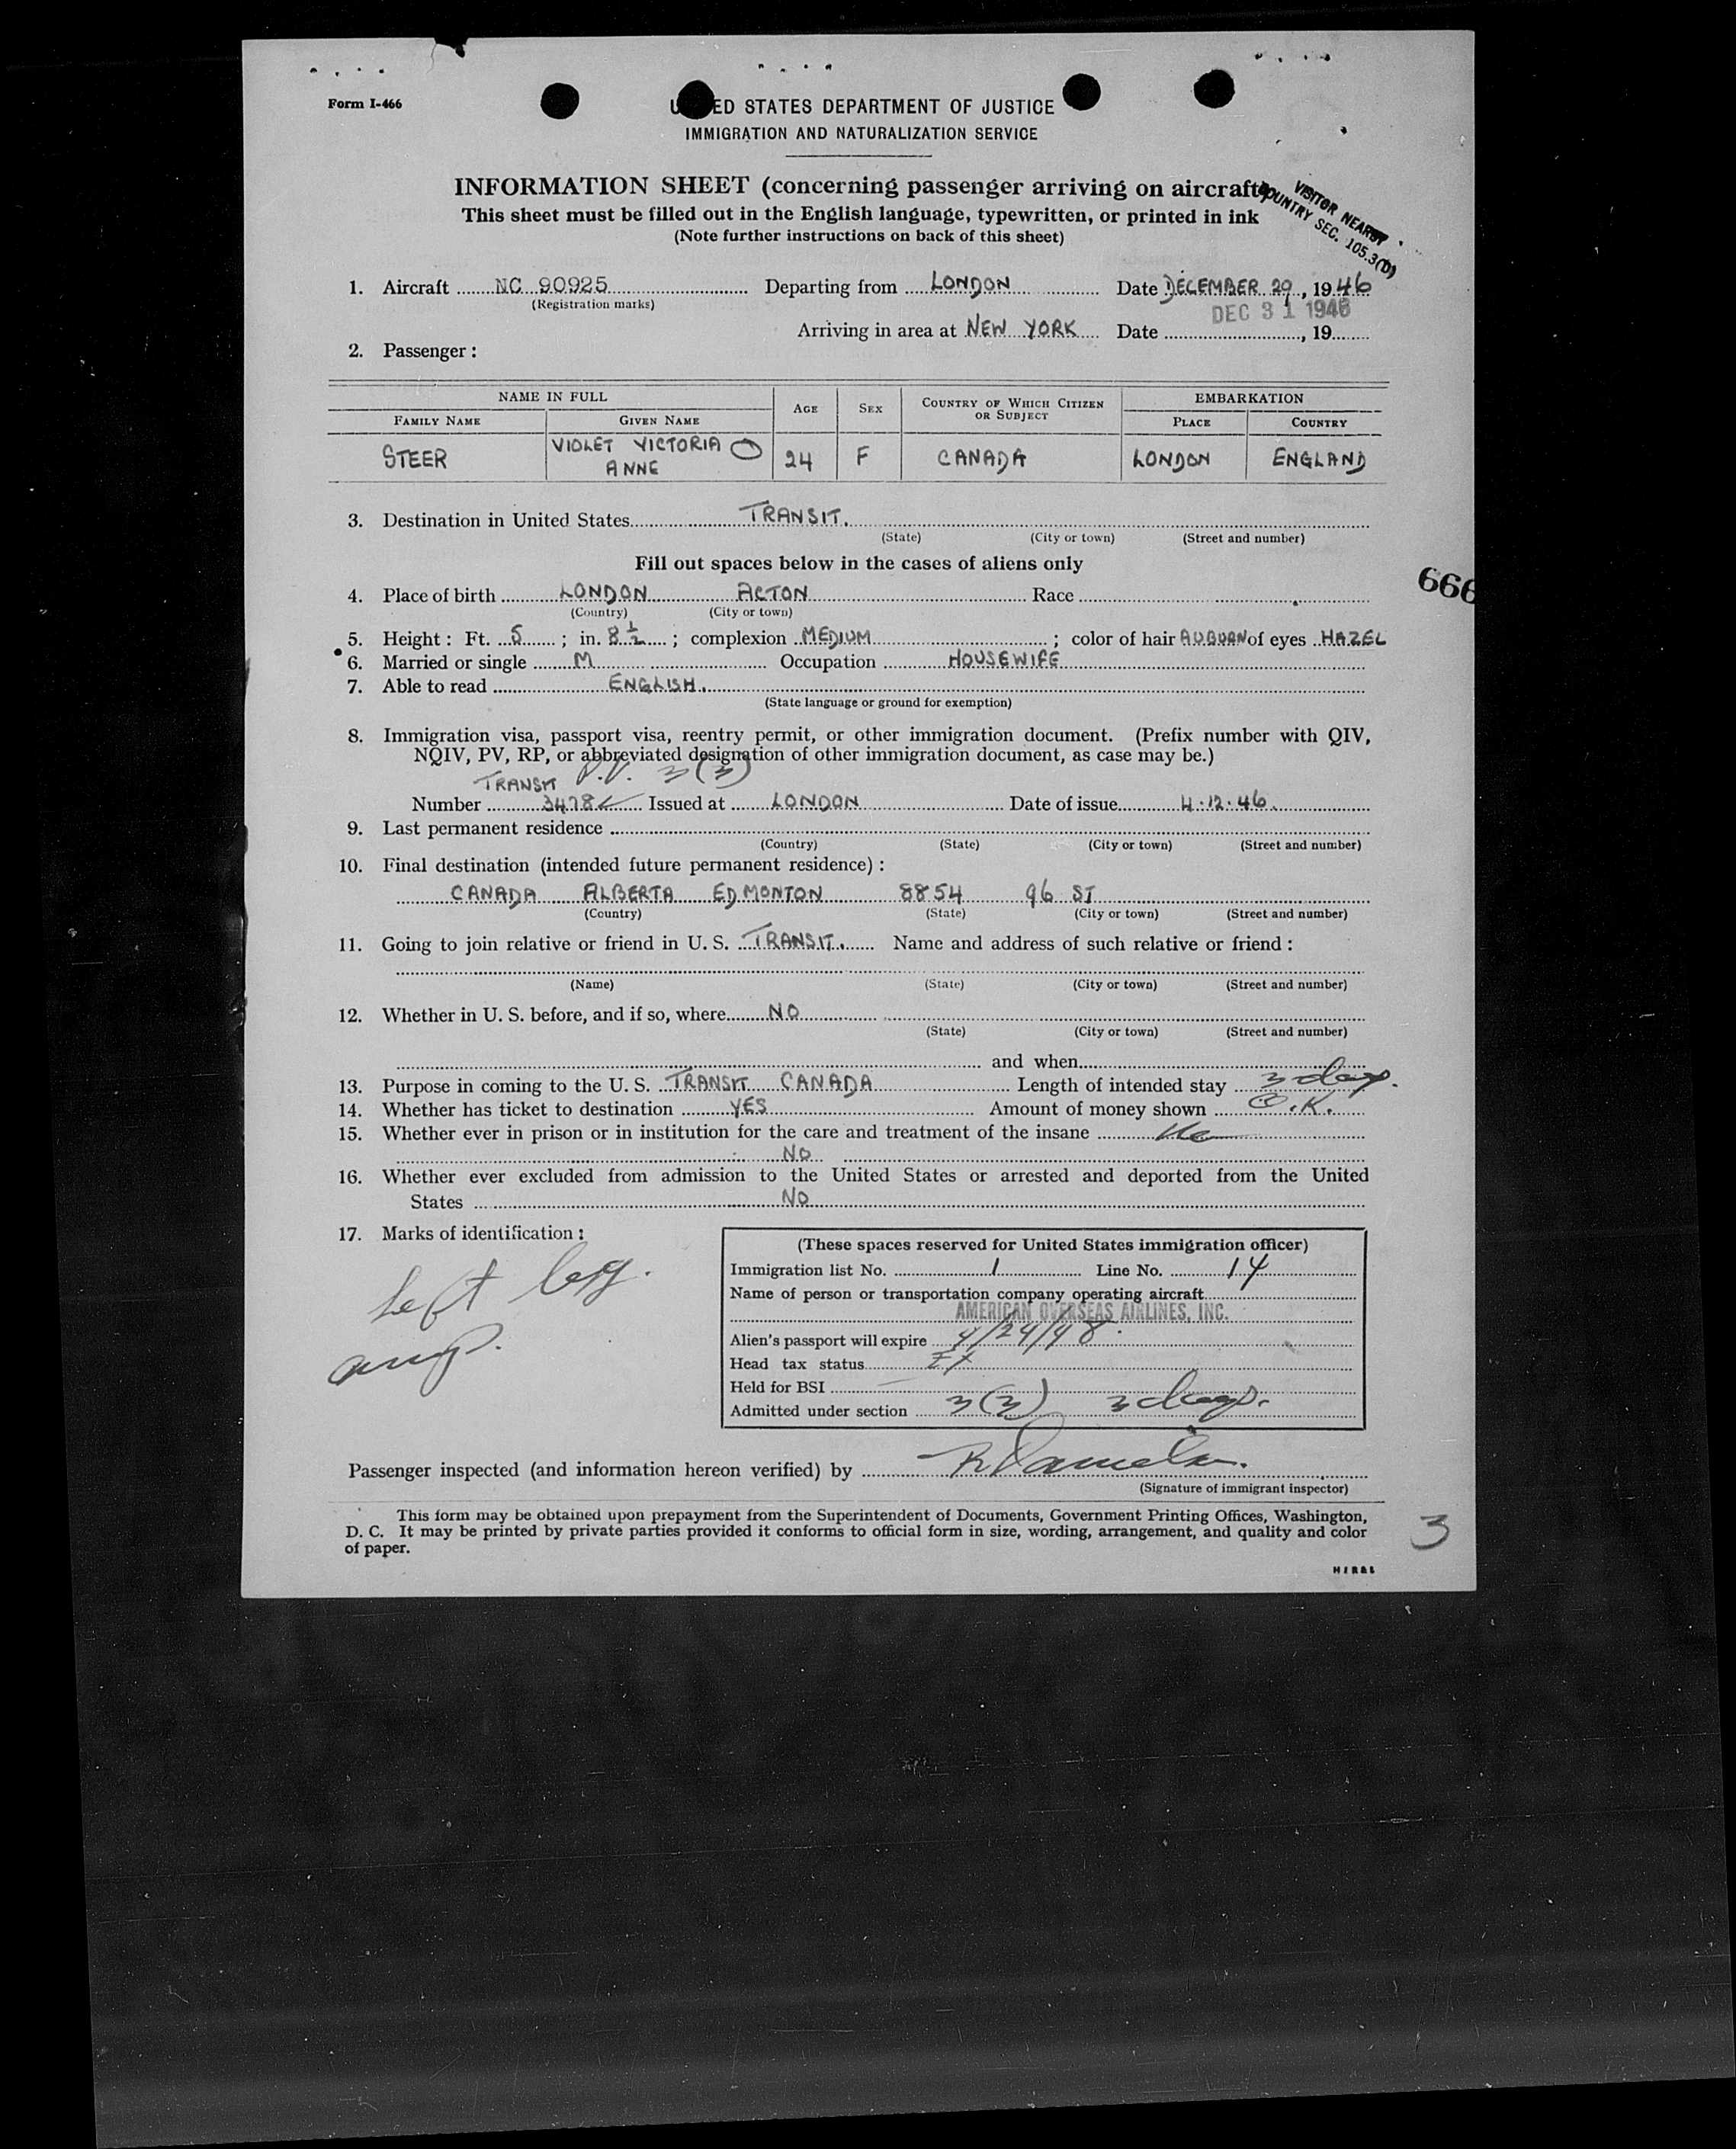 Form I-466
ED STATES DEPARTMENT OF JUSTICE
IMMIGRATION AND NATURALIZATION SERVICE
INFORMATION SHEET (concerning passenger arriving on aircraft)
VISITOR NEARBY
COUNTRY SEC. 105.3(D)
This sheet must be filled out in the English language, typewritten, or printed in ink
(Note further instructions on back of this sheet)
1. Aircraft NC 90925 Departing from LONDON Date DECEMBER 29, 1946
(Registration marks)
DEC 31 1946
Arriving in area at NEW YORK Date , 19
2. Passenger:
NAME IN FULL AGE SEX COUNTRY OF WHICH CITIZEN OR SUBJECT EMBARKATION
FAMILY NAME GIVEN NAME PLACE COUNTRY
STEER VIOLET VICTORIA ANNE 24 F CANADA LONDON ENGLAND
3. Destination in United States TRANSIT.
(State) (City or town) (Street and number)
Fill out spaces below in the cases of aliens only
666
4. Place of birth LONDON ACTON Race
(Country) (City or town)
5. Height: Ft. 5 ; in. 8 1/2 ; complexion MEDIUM ; color of hair AUBURN of eyes HAZEL
6. Married or single M Occupation HOUSEWIFE
7. Able to read ENGLISH.
(State language or ground for exemption)
8. Immigration visa, passport visa, reentry permit, or other immigration document. (Prefix number with QIV,
NQIV, PV, RP, or abbreviated designation of other immigration document, as case may be.)
TRANSIT P.V. 3(3)
Number 3478 Issued at LONDON Date of issue 4.12.46.
9. Last permanent residence
(Country) (State) (City or town) (Street and number)
10. Final destination (intended future permanent residence):
CANADA ALBERTA EDMONTON 8854 96 ST
(Country) (State) (City or town) (Street and number)
11. Going to join relative or friend in U. S. TRANSIT. Name and address of such relative or friend:
(Name) (State) (City or town) (Street and number)
12. Whether in U. S. before, and if so, where NO
(State) (City or town) (Street and number)
and when
13. Purpose in coming to the U. S. TRANSIT CANADA Length of intended stay 3 days.
14. Whether has ticket to destination YES Amount of money shown O.K.
15. Whether ever in prison or in institution for the care and treatment of the insane No
NO
16. Whether ever excluded from admission to the United States or arrested and deported from the United
States NO
17. Marks of identification:
Left leg.
amp.
(These spaces reserved for United States immigration officer)
Immigration list No. 1 Line No. 14
Name of person or transportation company operating aircraft
AMERICAN OVERSEAS AIRLINES, INC.
Alien's passport will expire 4/24/48
Head tax status EX
Held for BSI
Admitted under section 3(3) 3 days.
Passenger inspected (and information hereon verified) by
(Signature of immigrant inspector)
This form may be obtained upon prepayment from the Superintendent of Documents, Government Printing Offices, Washington,
D. C. It may be printed by private parties provided it conforms to official form in size, wording, arrangement, and quality and color
of paper.
3